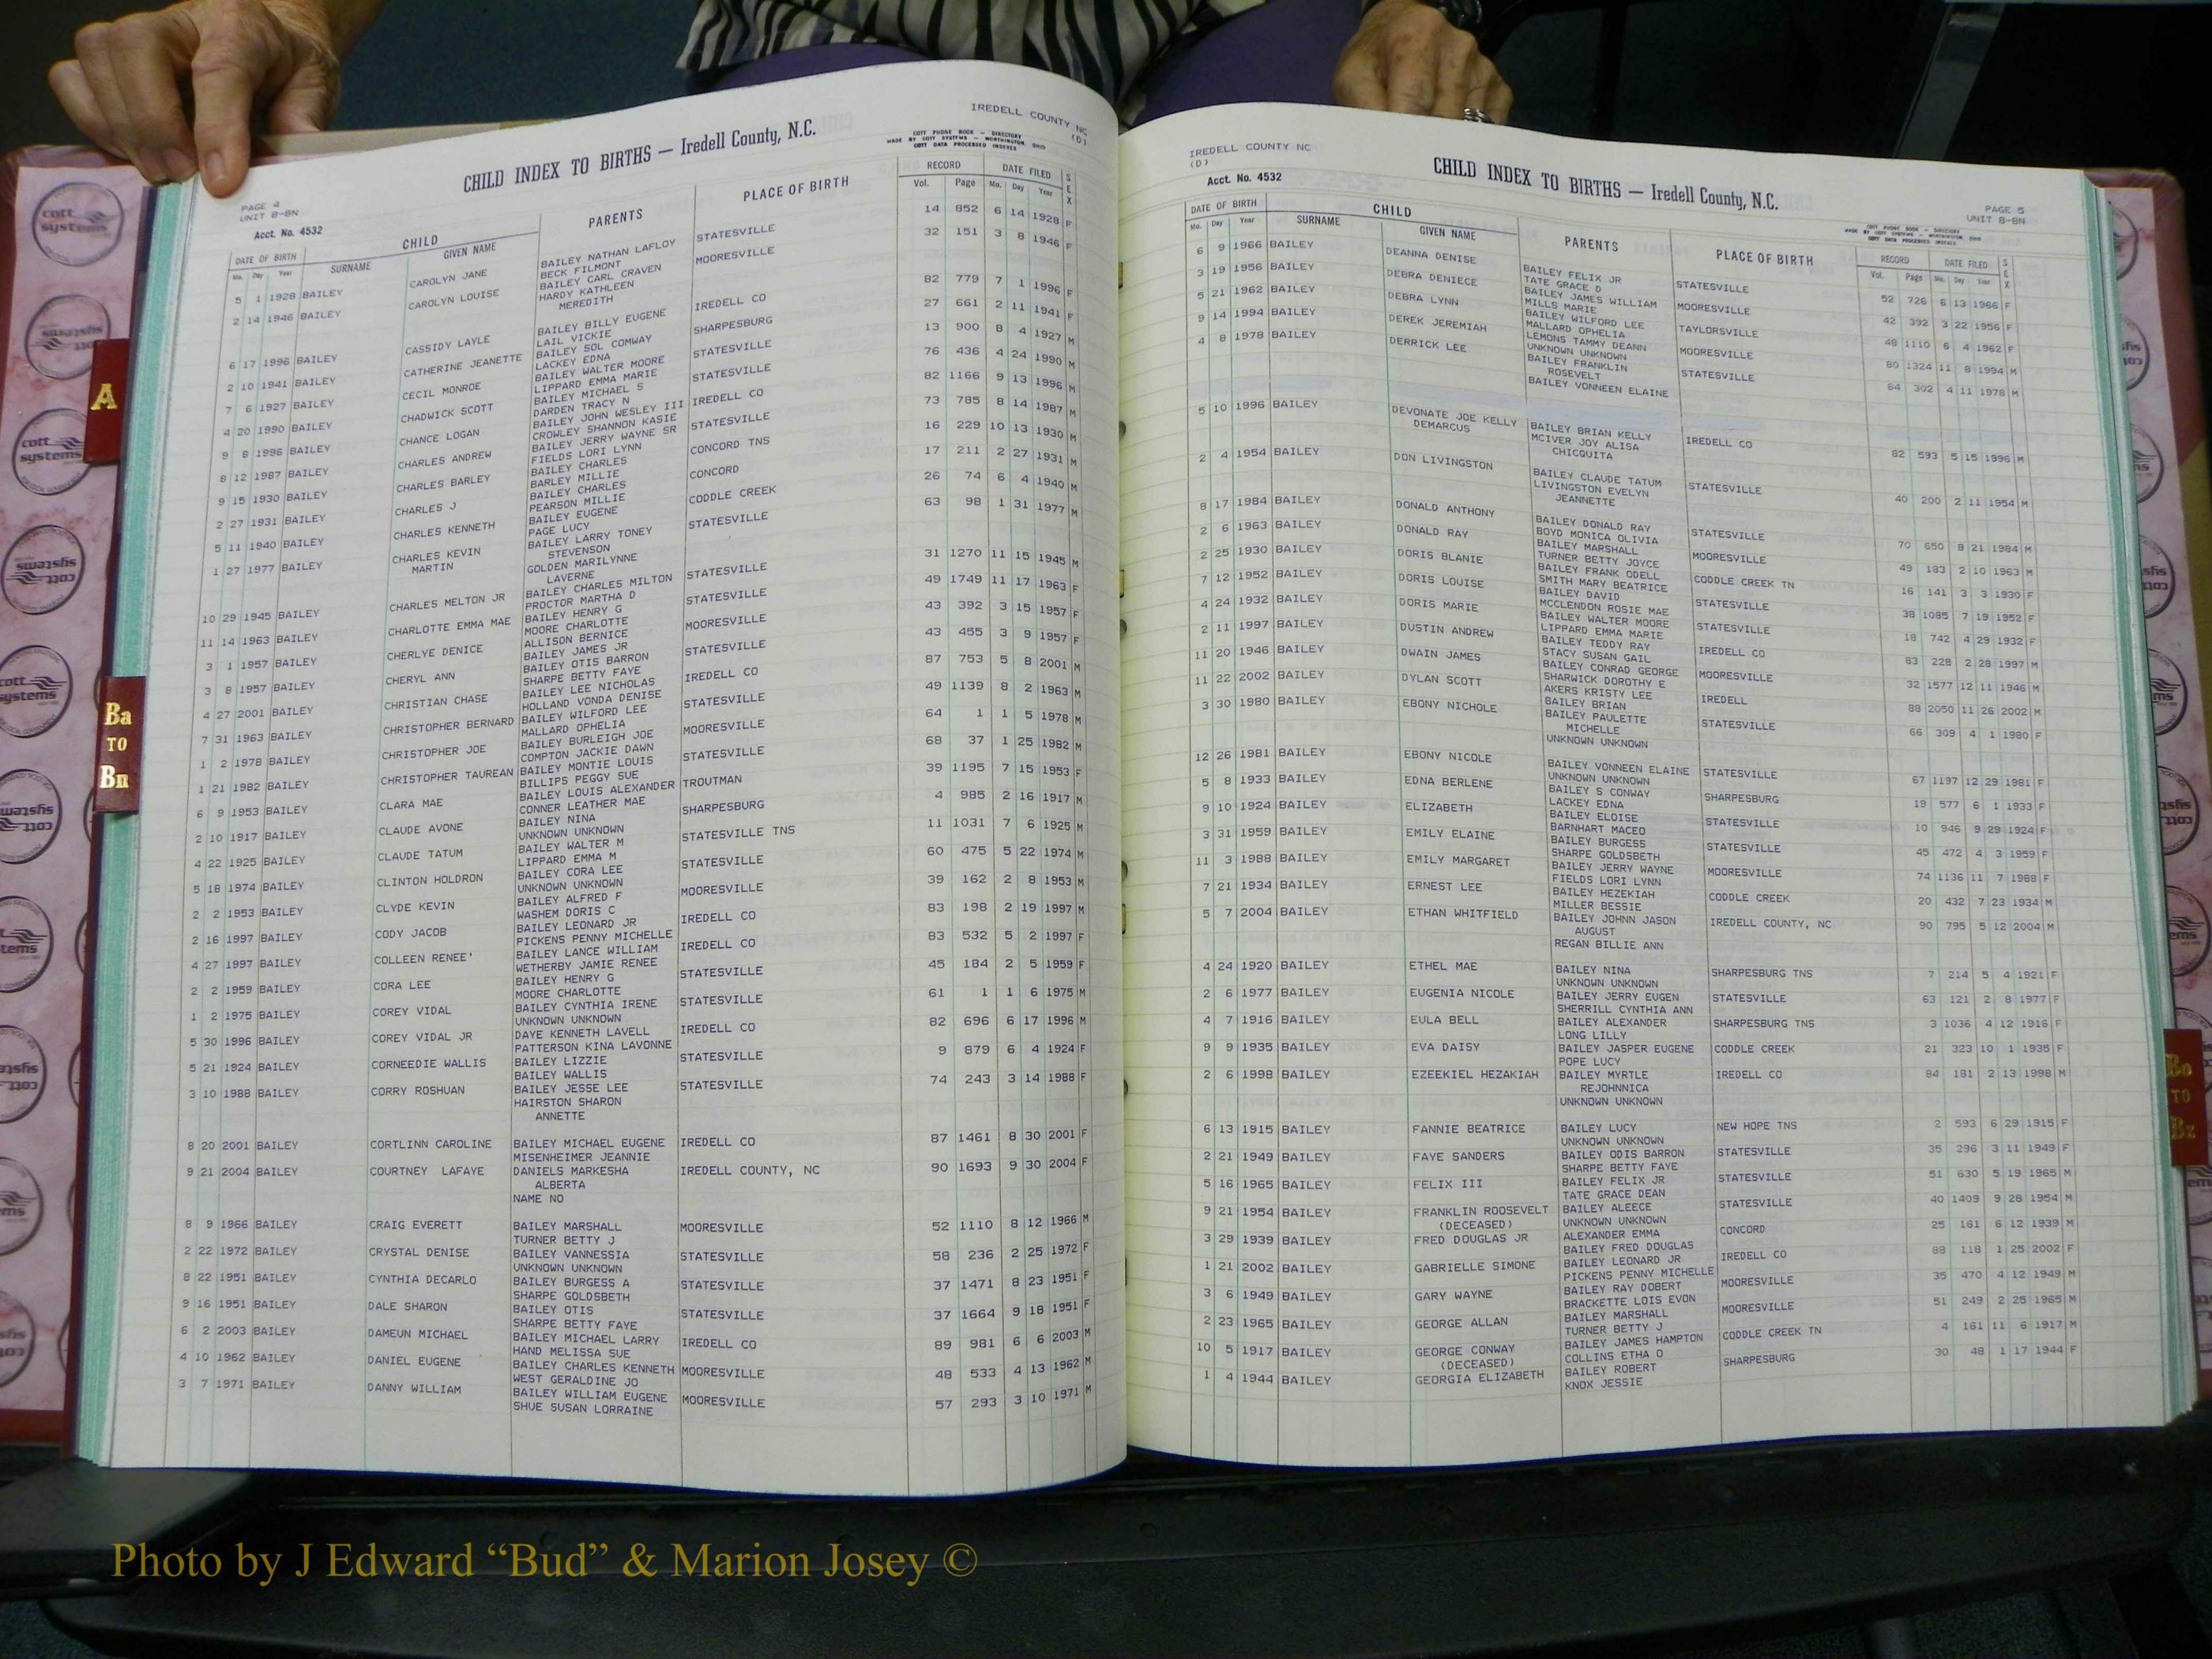 IREDELL COUNTY NC
(D)
CHILD INDEX TO BIRTHS — Iredell County, N.C.
COTT PHONE BOOK — DIRECTORY
MADE BY COTT SYSTEMS — WORTHINGTON, OHIO
COTT DATA PROCESSED INDEXES
PAGE 4
UNIT B-BN
Acct. No. 4532
DATE OF BIRTH CHILD PARENTS PLACE OF BIRTH RECORD DATE FILED SEX
Mo. Day Year SURNAME GIVEN NAME Vol. Page Mo. Day Year
5 1 1928 BAILEY CAROLYN JANE BAILEY NATHAN LAFLOY STATESVILLE 14 852 6 14 1928 F
BECK FILMONT
2 14 1946 BAILEY CAROLYN LOUISE BAILEY CARL CRAVEN MOORESVILLE 32 151 3 8 1946 F
HARDY KATHLEEN
MEREDITH
6 17 1996 BAILEY CASSIDY LAYLE BAILEY BILLY EUGENE IREDELL CO 82 779 7 1 1996 F
LAIL VICKIE
2 10 1941 BAILEY CATHERINE JEANETTE BAILEY SOL COMWAY SHARPESBURG 27 661 2 11 1941 F
LACKEY EDNA
7 6 1927 BAILEY CECIL MONROE BAILEY WALTER MOORE STATESVILLE 13 900 8 4 1927 M
LIPPARD EMMA MARIE
4 20 1990 BAILEY CHADWICK SCOTT BAILEY MICHAEL S STATESVILLE 76 436 4 24 1990 M
DARDEN TRACY N
9 8 1996 BAILEY CHANCE LOGAN BAILEY JOHN WESLEY III IREDELL CO 82 1166 9 13 1996 M
CROWLEY SHANNON KASIE
8 12 1987 BAILEY CHARLES ANDREW BAILEY JERRY WAYNE SR STATESVILLE 73 785 8 14 1987 M
FIELDS LORI LYNN
9 15 1930 BAILEY CHARLES BARLEY BAILEY CHARLES CONCORD TNS 16 229 10 13 1930 M
BARLEY MILLIE
2 27 1931 BAILEY CHARLES J BAILEY CHARLES CONCORD 17 211 2 27 1931 M
PEARSON MILLIE
5 11 1940 BAILEY CHARLES KENNETH BAILEY EUGENE CODDLE CREEK 26 74 6 4 1940 M
PAGE LUCY
1 27 1977 BAILEY CHARLES KEVIN BAILEY LARRY TONEY STATESVILLE 63 98 1 31 1977 M
MARTIN STEVENSON
GOLDEN MARILYNNE
LAVERNE
10 29 1945 BAILEY CHARLES MELTON JR BAILEY CHARLES MILTON STATESVILLE 31 1270 11 15 1945 M
PROCTOR MARTHA D
11 14 1963 BAILEY CHARLOTTE EMMA MAE BAILEY HENRY G STATESVILLE 49 1749 11 17 1963 F
MOORE CHARLOTTE
3 1 1957 BAILEY CHERLYE DENICE ALLISON BERNICE MOORESVILLE 43 392 3 15 1957 F
BAILEY JAMES JR
3 8 1957 BAILEY CHERYL ANN BAILEY OTIS BARRON STATESVILLE 43 455 3 9 1957 F
SHARPE BETTY FAYE
4 27 2001 BAILEY CHRISTIAN CHASE BAILEY LEE NICHOLAS IREDELL CO 87 753 5 8 2001 M
HOLLAND VONDA DENISE
7 31 1963 BAILEY CHRISTOPHER BERNARD BAILEY WILFORD LEE STATESVILLE 49 1139 8 2 1963 M
MALLARD OPHELIA
1 2 1978 BAILEY CHRISTOPHER JOE BAILEY BURLEIGH JOE MOORESVILLE 64 1 1 5 1978 M
COMPTON JACKIE DAWN
1 21 1982 BAILEY CHRISTOPHER TAUREAN BAILEY MONTIE LOUIS STATESVILLE 68 37 1 25 1982 M
BILLIPS PEGGY SUE
6 9 1953 BAILEY CLARA MAE BAILEY LOUIS ALEXANDER TROUTMAN 39 1195 7 15 1953 F
CONNER LEATHER MAE
2 10 1917 BAILEY CLAUDE AVONE BAILEY NINA SHARPESBURG 4 985 2 16 1917 M
UNKNOWN UNKNOWN
4 22 1925 BAILEY CLAUDE TATUM BAILEY WALTER M STATESVILLE TNS 11 1031 7 6 1925 M
LIPPARD EMMA M
5 18 1974 BAILEY CLINTON HOLDRON BAILEY CORA LEE STATESVILLE 60 475 5 22 1974 M
UNKNOWN UNKNOWN
2 2 1953 BAILEY CLYDE KEVIN BAILEY ALFRED F MOORESVILLE 39 162 2 8 1953 M
WASHEM DORIS C
2 16 1997 BAILEY CODY JACOB BAILEY LEONARD JR IREDELL CO 83 198 2 19 1997 M
PICKENS PENNY MICHELLE
4 27 1997 BAILEY COLLEEN RENEE' BAILEY LANCE WILLIAM IREDELL CO 83 532 5 2 1997 F
WETHERBY JAMIE RENEE
2 2 1959 BAILEY CORA LEE BAILEY HENRY G STATESVILLE 45 184 2 5 1959 F
MOORE CHARLOTTE
1 2 1975 BAILEY COREY VIDAL BAILEY CYNTHIA IRENE STATESVILLE 61 1 1 6 1975 M
UNKNOWN UNKNOWN
5 30 1996 BAILEY COREY VIDAL JR DAYE KENNETH LAVELL IREDELL CO 82 696 6 17 1996 M
PATTERSON KINA LAVONNE
5 21 1924 BAILEY CORNEEDIE WALLIS BAILEY LIZZIE STATESVILLE 9 879 6 4 1924 F
BAILEY WALLIS
3 10 1988 BAILEY CORRY ROSHUAN BAILEY JESSE LEE STATESVILLE 74 243 3 14 1988 F
HAIRSTON SHARON
ANNETTE
8 20 2001 BAILEY CORTLINN CAROLINE BAILEY MICHAEL EUGENE IREDELL CO 87 1461 8 30 2001 F
MISENHEIMER JEANNIE
9 21 2004 BAILEY COURTNEY LAFAYE DANIELS MARKESHA IREDELL COUNTY, NC 90 1693 9 30 2004 F
ALBERTA
NAME NO
8 9 1966 BAILEY CRAIG EVERETT BAILEY MARSHALL MOORESVILLE 52 1110 8 12 1966 M
TURNER BETTY J
2 22 1972 BAILEY CRYSTAL DENISE BAILEY VANNESSIA STATESVILLE 58 236 2 25 1972 F
UNKNOWN UNKNOWN
8 22 1951 BAILEY CYNTHIA DECARLO BAILEY BURGESS A STATESVILLE 37 1471 8 23 1951 F
SHARPE GOLDSBETH
9 16 1951 BAILEY DALE SHARON BAILEY OTIS STATESVILLE 37 1664 9 18 1951 F
SHARPE BETTY FAYE
6 2 2003 BAILEY DAMEUN MICHAEL BAILEY MICHAEL LARRY IREDELL CO 89 981 6 6 2003 M
HAND MELISSA SUE
4 10 1962 BAILEY DANIEL EUGENE BAILEY CHARLES KENNETH MOORESVILLE 48 533 4 13 1962 M
WEST GERALDINE JO
3 7 1971 BAILEY DANNY WILLIAM BAILEY WILLIAM EUGENE MOORESVILLE 57 293 3 10 1971 M
SHUE SUSAN LORRAINE
IREDELL COUNTY NC
(D)
Acct. No. 4532
CHILD INDEX TO BIRTHS — Iredell County, N.C.
PAGE 5
UNIT B-BN
COTT PHONE BOOK — DIRECTORY
MADE BY COTT SYSTEMS — WORTHINGTON, OHIO
COTT DATA PROCESSED INDEXES
DATE OF BIRTH CHILD PARENTS PLACE OF BIRTH RECORD DATE FILED SEX
Mo. Day Year SURNAME GIVEN NAME Vol. Page Mo. Day Year
6 9 1966 BAILEY DEANNA DENISE BAILEY FELIX JR STATESVILLE 52 726 6 13 1966 F
TATE GRACE D
3 19 1956 BAILEY DEBRA DENIECE BAILEY JAMES WILLIAM MOORESVILLE 42 392 3 22 1956 F
MILLS MARIE
5 21 1962 BAILEY DEBRA LYNN BAILEY WILFORD LEE TAYLORSVILLE 48 1110 6 4 1962 F
MALLARD OPHELIA
9 14 1994 BAILEY DEREK JEREMIAH LEMONS TAMMY DEANN MOORESVILLE 80 1324 11 8 1994 M
UNKNOWN UNKNOWN
4 8 1978 BAILEY DERRICK LEE BAILEY FRANKLIN STATESVILLE 64 302 4 11 1978 M
ROSEVELT
BAILEY VONNEEN ELAINE
5 10 1996 BAILEY DEVONATE JOE KELLY BAILEY BRIAN KELLY IREDELL CO 82 593 5 15 1996 M
DEMARCUS MCIVER JOY ALISA
CHICQUITA
2 4 1954 BAILEY DON LIVINGSTON BAILEY CLAUDE TATUM STATESVILLE 40 200 2 11 1954 M
LIVINGSTON EVELYN
JEANNETTE
8 17 1984 BAILEY DONALD ANTHONY BAILEY DONALD RAY STATESVILLE 70 650 8 21 1984 M
BOYD MONICA OLIVIA
2 6 1963 BAILEY DONALD RAY BAILEY MARSHALL MOORESVILLE 49 183 2 10 1963 M
TURNER BETTY JOYCE
2 25 1930 BAILEY DORIS BLANIE BAILEY FRANK ODELL CODDLE CREEK TN 16 141 3 3 1930 F
SMITH MARY BEATRICE
7 12 1952 BAILEY DORIS LOUISE BAILEY DAVID STATESVILLE 38 1085 7 19 1952 F
MCCLENDON ROSIE MAE
4 24 1932 BAILEY DORIS MARIE BAILEY WALTER MOORE STATESVILLE 18 742 4 29 1932 F
LIPPARD EMMA MARIE
2 11 1997 BAILEY DUSTIN ANDREW BAILEY TEDDY RAY IREDELL CO 83 228 2 28 1997 M
STACY SUSAN GAIL
11 20 1946 BAILEY DWAIN JAMES BAILEY CONRAD GEORGE MOORESVILLE 32 1577 12 11 1946 M
SHARWICK DOROTHY E
11 22 2002 BAILEY DYLAN SCOTT AKERS KRISTY LEE IREDELL 88 2050 11 26 2002 M
BAILEY BRIAN
3 30 1980 BAILEY EBONY NICHOLE BAILEY PAULETTE STATESVILLE 66 309 4 1 1980 F
MICHELLE
UNKNOWN UNKNOWN
12 26 1981 BAILEY EBONY NICOLE BAILEY VONNEEN ELAINE STATESVILLE 67 1197 12 29 1981 F
UNKNOWN UNKNOWN
5 8 1933 BAILEY EDNA BERLENE BAILEY S CONWAY SHARPESBURG 19 577 6 1 1933 F
LACKEY EDNA
9 10 1924 BAILEY ELIZABETH BAILEY ELOISE STATESVILLE 10 946 9 29 1924 F
BARNHART MACEO
3 31 1959 BAILEY EMILY ELAINE BAILEY BURGESS STATESVILLE 45 472 4 3 1959 F
SHARPE GOLDSBETH
11 3 1988 BAILEY EMILY MARGARET BAILEY JERRY WAYNE MOORESVILLE 74 1136 11 7 1988 F
FIELDS LORI LYNN
7 21 1934 BAILEY ERNEST LEE BAILEY HEZEKIAH CODDLE CREEK 20 432 7 23 1934 M
MILLER BESSIE
5 7 2004 BAILEY ETHAN WHITFIELD BAILEY JOHNN JASON IREDELL COUNTY, NC 90 795 5 12 2004 M
AUGUST
REGAN BILLIE ANN
4 24 1920 BAILEY ETHEL MAE BAILEY NINA SHARPESBURG TNS 7 214 5 4 1921 F
UNKNOWN UNKNOWN
2 6 1977 BAILEY EUGENIA NICOLE BAILEY JERRY EUGEN STATESVILLE 63 121 2 8 1977 F
SHERRILL CYNTHIA ANN
4 7 1916 BAILEY EULA BELL BAILEY ALEXANDER SHARPESBURG TNS 3 1036 4 12 1916 F
LONG LILLY
9 9 1935 BAILEY EVA DAISY BAILEY JASPER EUGENE CODDLE CREEK 21 323 10 1 1935 F
POPE LUCY
2 6 1998 BAILEY EZEEKIEL HEZAKIAH BAILEY MYRTLE IREDELL CO 84 181 2 13 1998 M
REJOHNNICA
UNKNOWN UNKNOWN
6 13 1915 BAILEY FANNIE BEATRICE BAILEY LUCY NEW HOPE TNS 2 593 6 29 1915 F
UNKNOWN UNKNOWN
2 21 1949 BAILEY FAYE SANDERS BAILEY ODIS BARRON STATESVILLE 35 296 3 11 1949 F
SHARPE BETTY FAYE
5 16 1965 BAILEY FELIX III BAILEY FELIX JR STATESVILLE 51 630 5 19 1965 M
TATE GRACE DEAN
9 21 1954 BAILEY FRANKLIN ROOSEVELT BAILEY ALEECE STATESVILLE 40 1409 9 28 1954 M
(DECEASED) UNKNOWN UNKNOWN
3 29 1939 BAILEY FRED DOUGLAS JR ALEXANDER EMMA CONCORD 25 161 6 12 1939 M
BAILEY FRED DOUGLAS
1 21 2002 BAILEY GABRIELLE SIMONE BAILEY LEONARD JR IREDELL CO 88 118 1 25 2002 F
PICKENS PENNY MICHELLE
3 6 1949 BAILEY GARY WAYNE BAILEY RAY DOBERT MOORESVILLE 35 470 4 12 1949 M
BRACKETTE LOIS EVON
2 23 1965 BAILEY GEORGE ALLAN BAILEY MARSHALL MOORESVILLE 51 249 2 25 1965 M
TURNER BETTY J
10 5 1917 BAILEY GEORGE CONWAY BAILEY JAMES HAMPTON CODDLE CREEK TN 4 161 11 6 1917 M
(DECEASED) COLLINS ETHA O
1 4 1944 BAILEY GEORGIA ELIZABETH BAILEY ROBERT SHARPESBURG 30 48 1 17 1944 F
KNOX JESSIE
A
Ba
TO
Bn
Bo
TO
Bz
cott
systems
Photo by J Edward “Bud” & Marion Josey ©